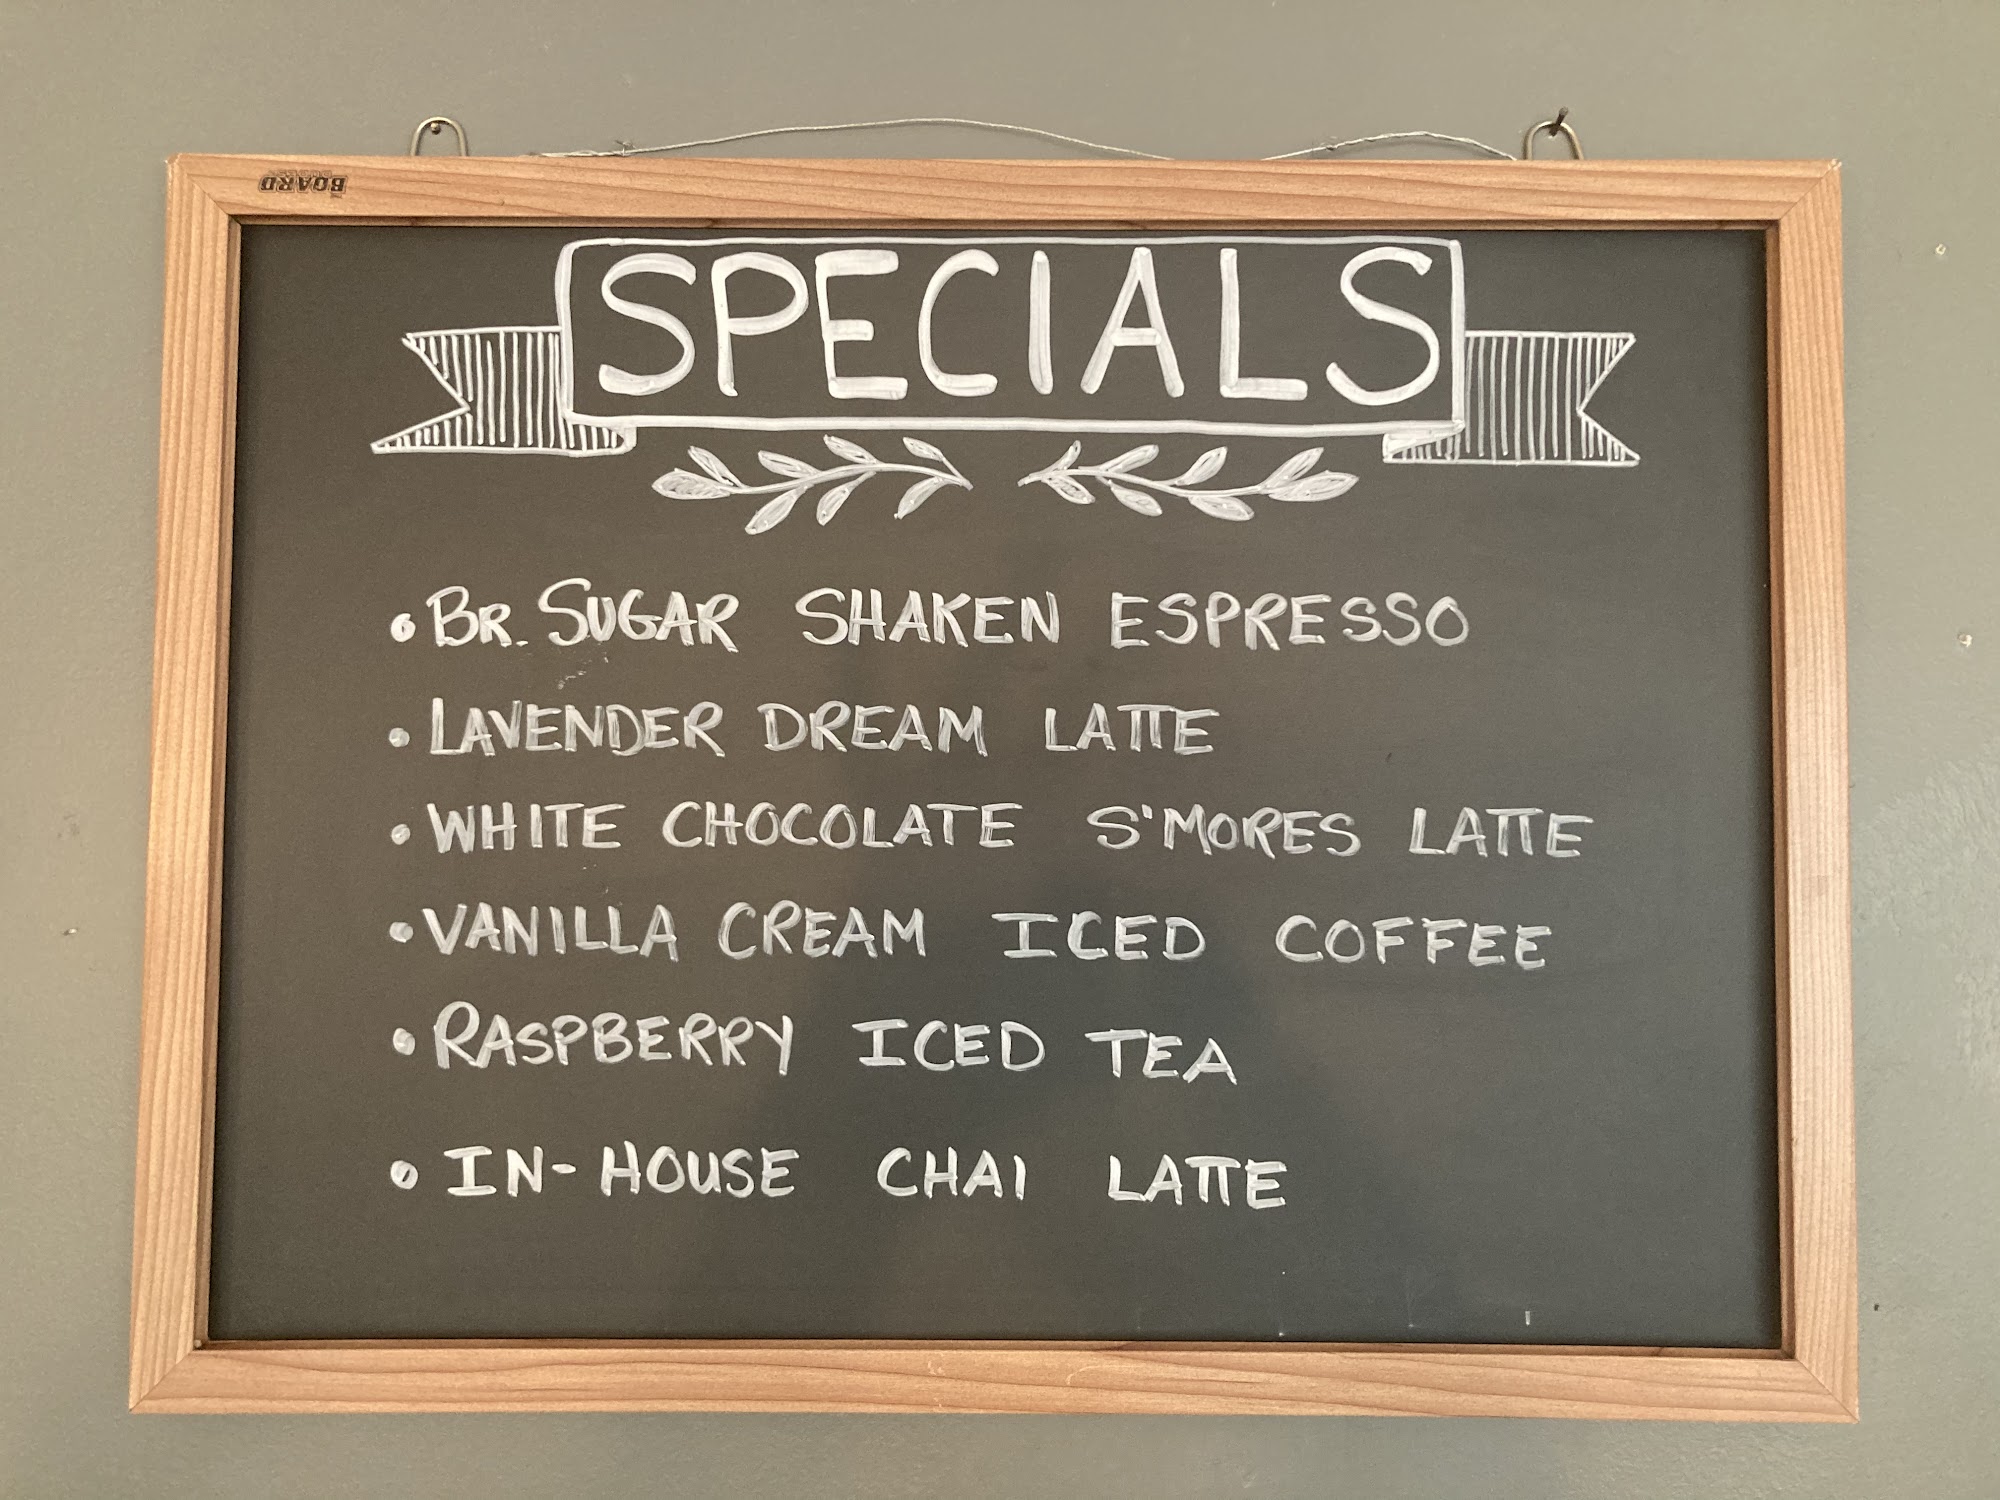 BOARD
SPECIALS
• BR. SUGAR SHAKEN ESPRESSO
• LAVENDER DREAM LATTE
• WHITE CHOCOLATE S'MORES LATTE
• VANILLA CREAM ICED COFFEE
• RASPBERRY ICED TEA
• IN-HOUSE CHAI LATTE